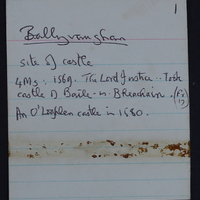 1
Ballyvaughan
site of castle
4Ms. 1569. The Lord Justice .. took
castle of Baile-
An O'Loghlen castle in 1580.